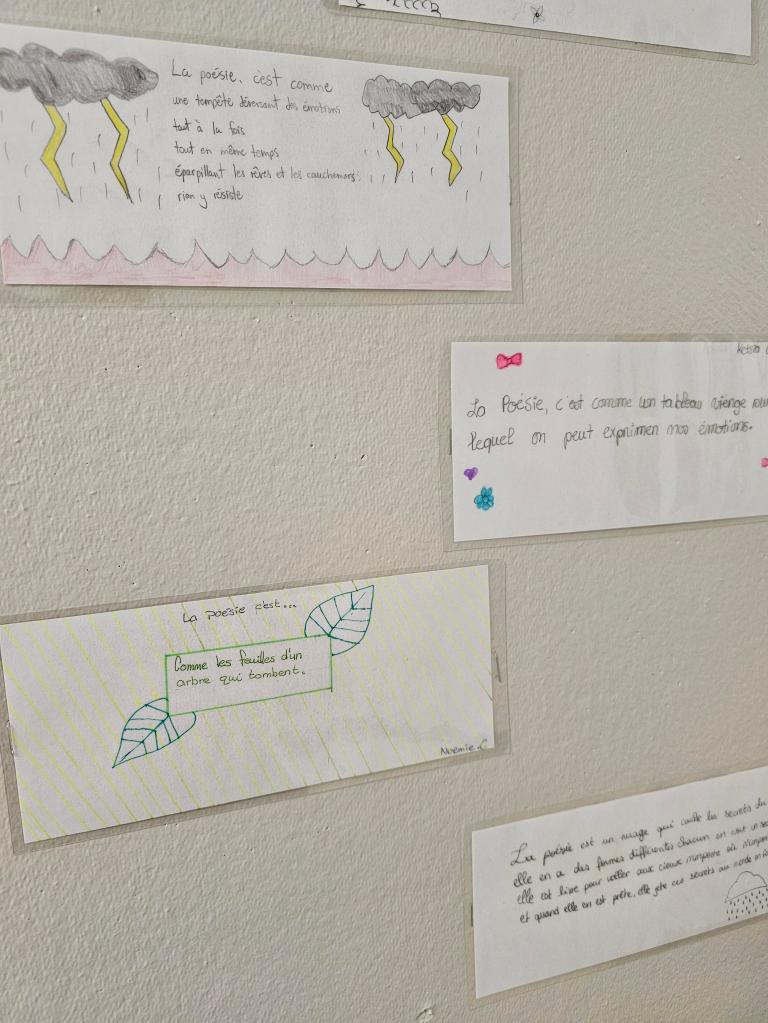 La poésie, c'est comme
une tempête déversant des émotions
tout à la fois
tout en même temps
éparpillant les rêves et les cauchemars:
rien y résiste
Ketsia
La Poésie, c'est comme un tableau vierge sur
lequel on peut exprimer nos émotions.
La poésie c'est...
Comme les feuilles d'un
arbre qui tombent.
Noémie.C
La poésie est un nuage qui cache les secrets du
elle en a des formes différentes chacun en voit un
elle est libre pour voller aux cieux n'importe où
et quand elle en est prête, elle jete ces secrets au monde